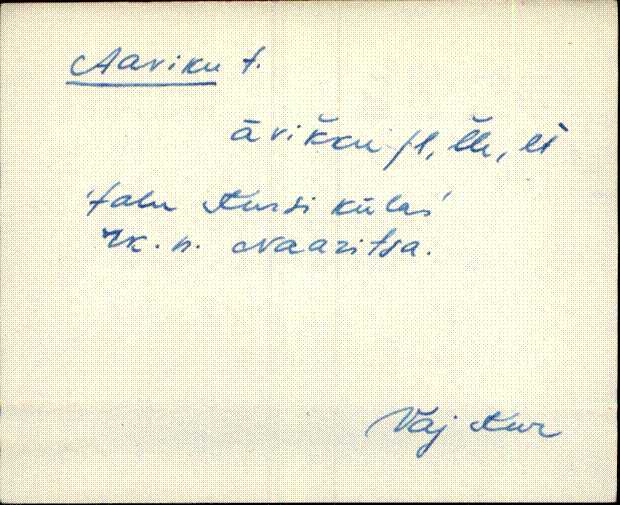 Aaviku t.
āvik̆ku fl, l̆le, lt
'talu Kursi külas'
rk. n. Naaritsa.
Vaj Kur